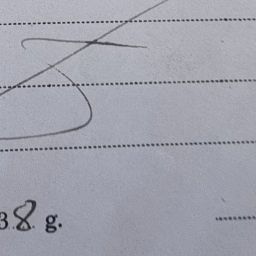 38 g.